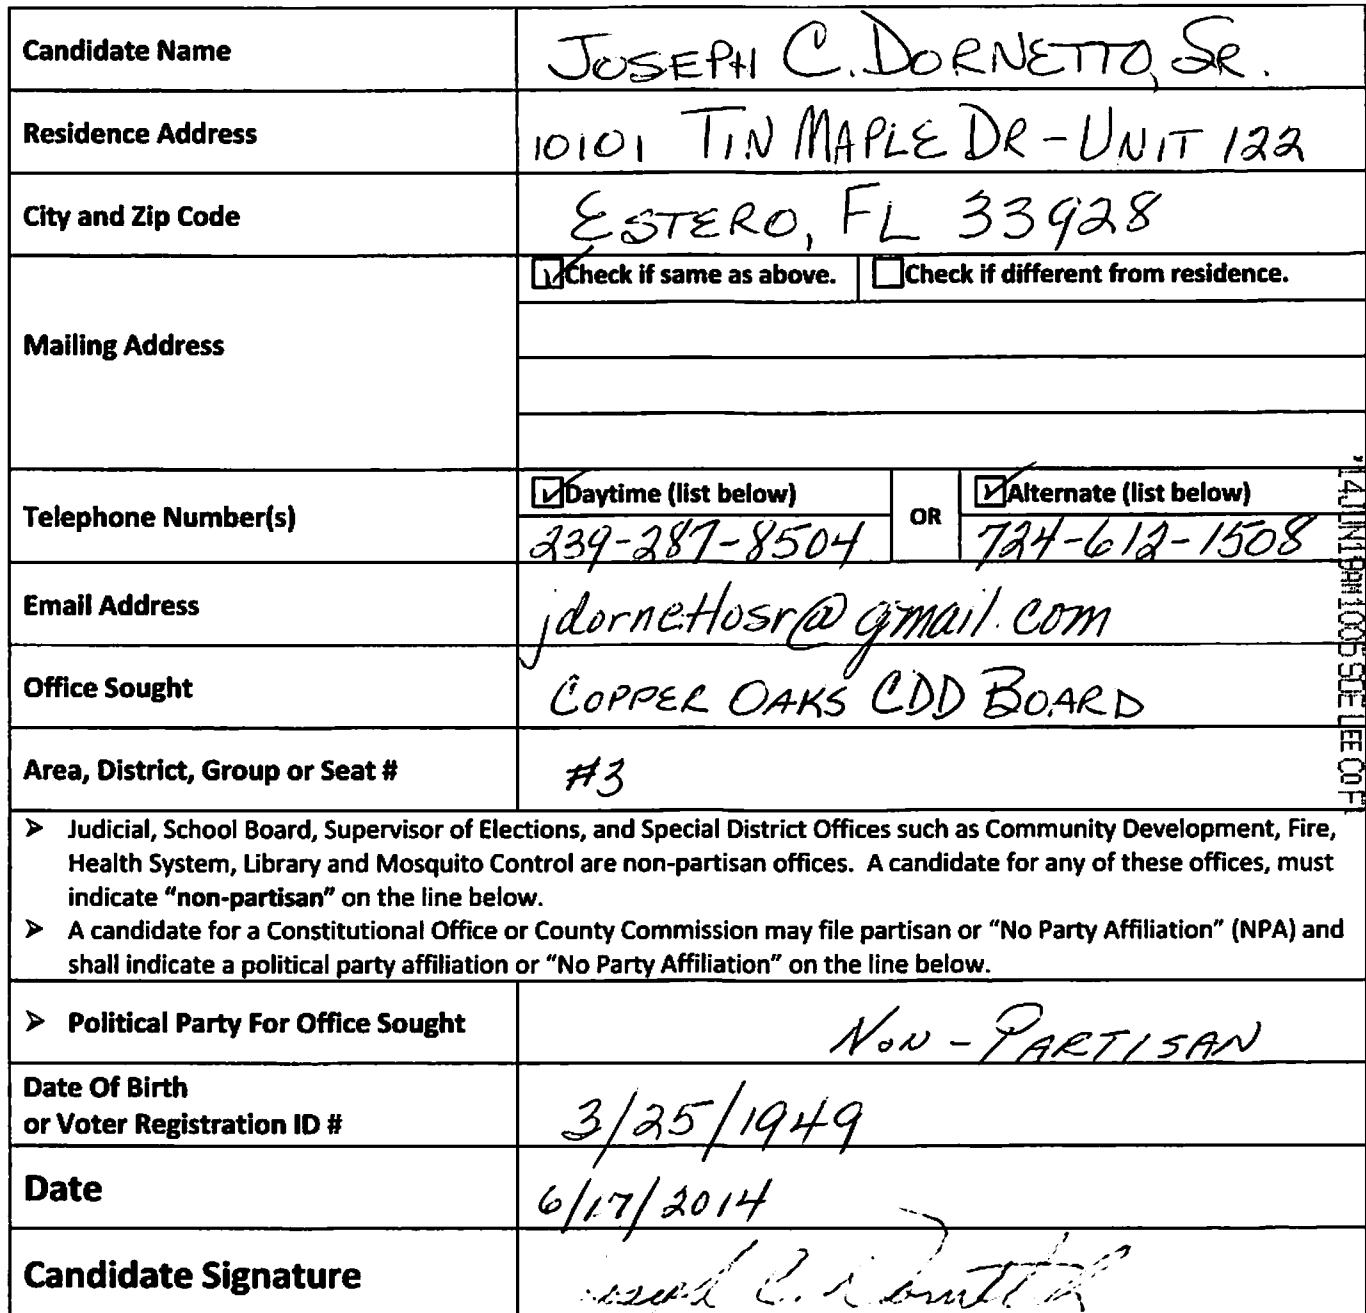 Candidate Name JOSEPH C. DORNETTO, SR.
Residence Address 10101 TIN MAPLE DR - UNIT 122
City and Zip Code ESTERO, FL 33928
Mailing Address Check if same as above. Check if different from residence.
Telephone Number(s) Daytime (list below) OR Alternate (list below)
239-287-8504 724-612-1508
Email Address jdornettosr@gmail.com
Office Sought COPPER OAKS CDD BOARD
Area, District, Group or Seat # #3
➢ Judicial, School Board, Supervisor of Elections, and Special District Offices such as Community Development, Fire,
Health System, Library and Mosquito Control are non-partisan offices. A candidate for any of these offices, must
indicate "non-partisan" on the line below.
➢ A candidate for a Constitutional Office or County Commission may file partisan or "No Party Affiliation" (NPA) and
shall indicate a political party affiliation or "No Party Affiliation" on the line below.
➢ Political Party For Office Sought NON - PARTISAN
Date Of Birth
or Voter Registration ID # 3/25/1949
Date 6/17/2014
Candidate Signature
'14JUN19AM1005 SOE LEE CO F